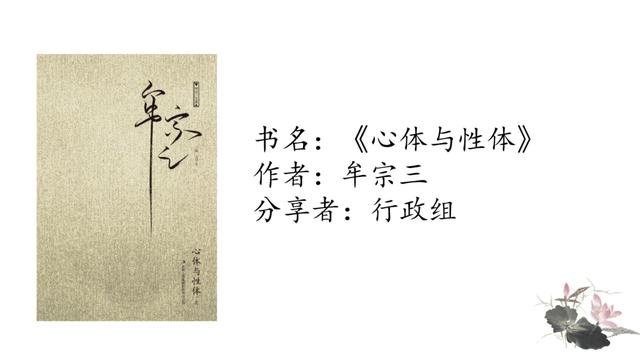 牟宗三
心体与性体 上
书名：《心体与性体》
作者：牟宗三
分享者：行政组